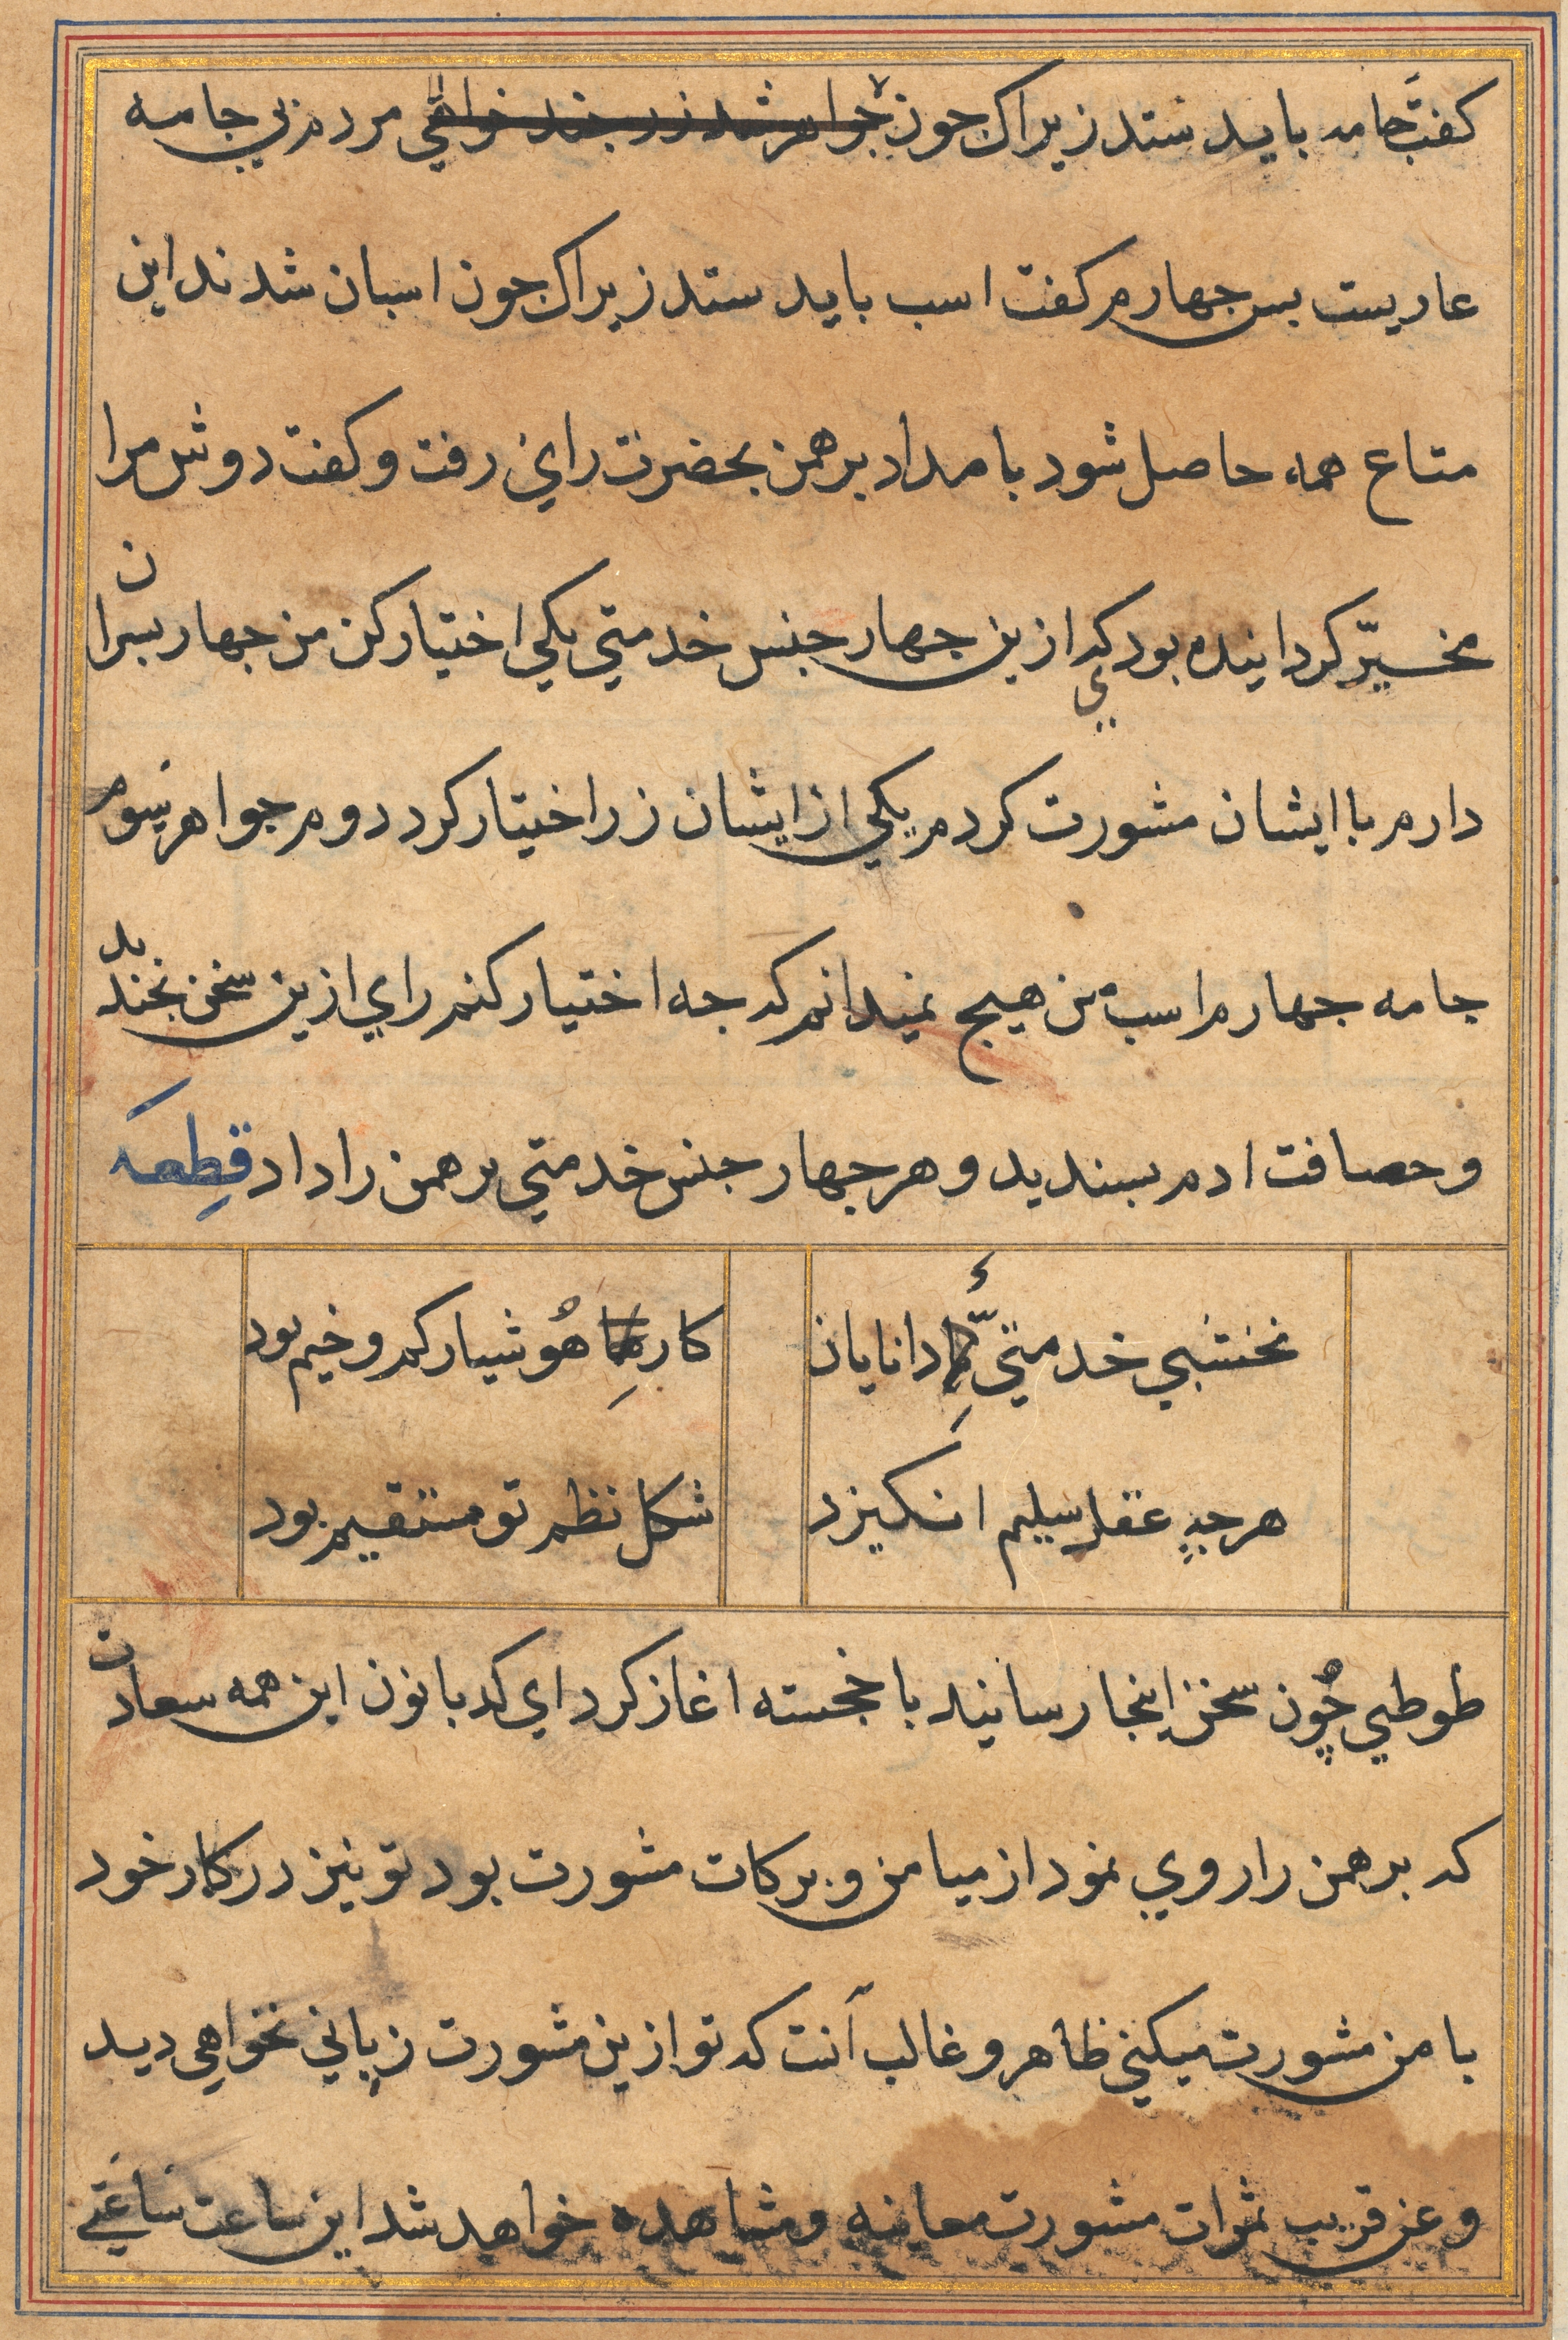 کفت جامه باید ستد زیراک جون جواهر شد زر جند خواهي مردم بي جامه
عاریست بس جهارم کفت اسب باید ستد زیراک جون اسبان شدند این
متاع همه حاصل شود بامداد برهمن بحضرت راي رفت و کفت دوش مرا
مخیّر کردانیده بودي که ازین جهار جنس خدمتي یکي اختیار کن من جهار بسران
دارم با ایشان مشورت کردم یکي از ایشان زر اختیار کرد دوم جواهر سوم
جامه جهارم اسب من هیج نمیدانم که جه اختیار کنم راي ازین سخن بخندید
و حصافت ادم بسندید و هر جهار جنس خدمتي برهمن را داد قطعه
نخشبي خدمتيّ دانایان
کار هُوشیار کم وخیم بود
هرجه عقل سلیم انکیزد
شکل نظم تو مستقیم بود
طوطي چُون سخن اینجا رسانید با خجسته اغاز کرد اي کدبانون این همه سعادت
که برهمن را روي نمود از میامن و برکات مشورت بود تو نیز در کار خود
با من مشورت میکني ظاهر و غالب آنت که تو ازین مشورت زیاني نخواهي دید
و عن قریب ثمرات مشورت معاینه و مشاهده خواهد شد این ساعت ساعتي